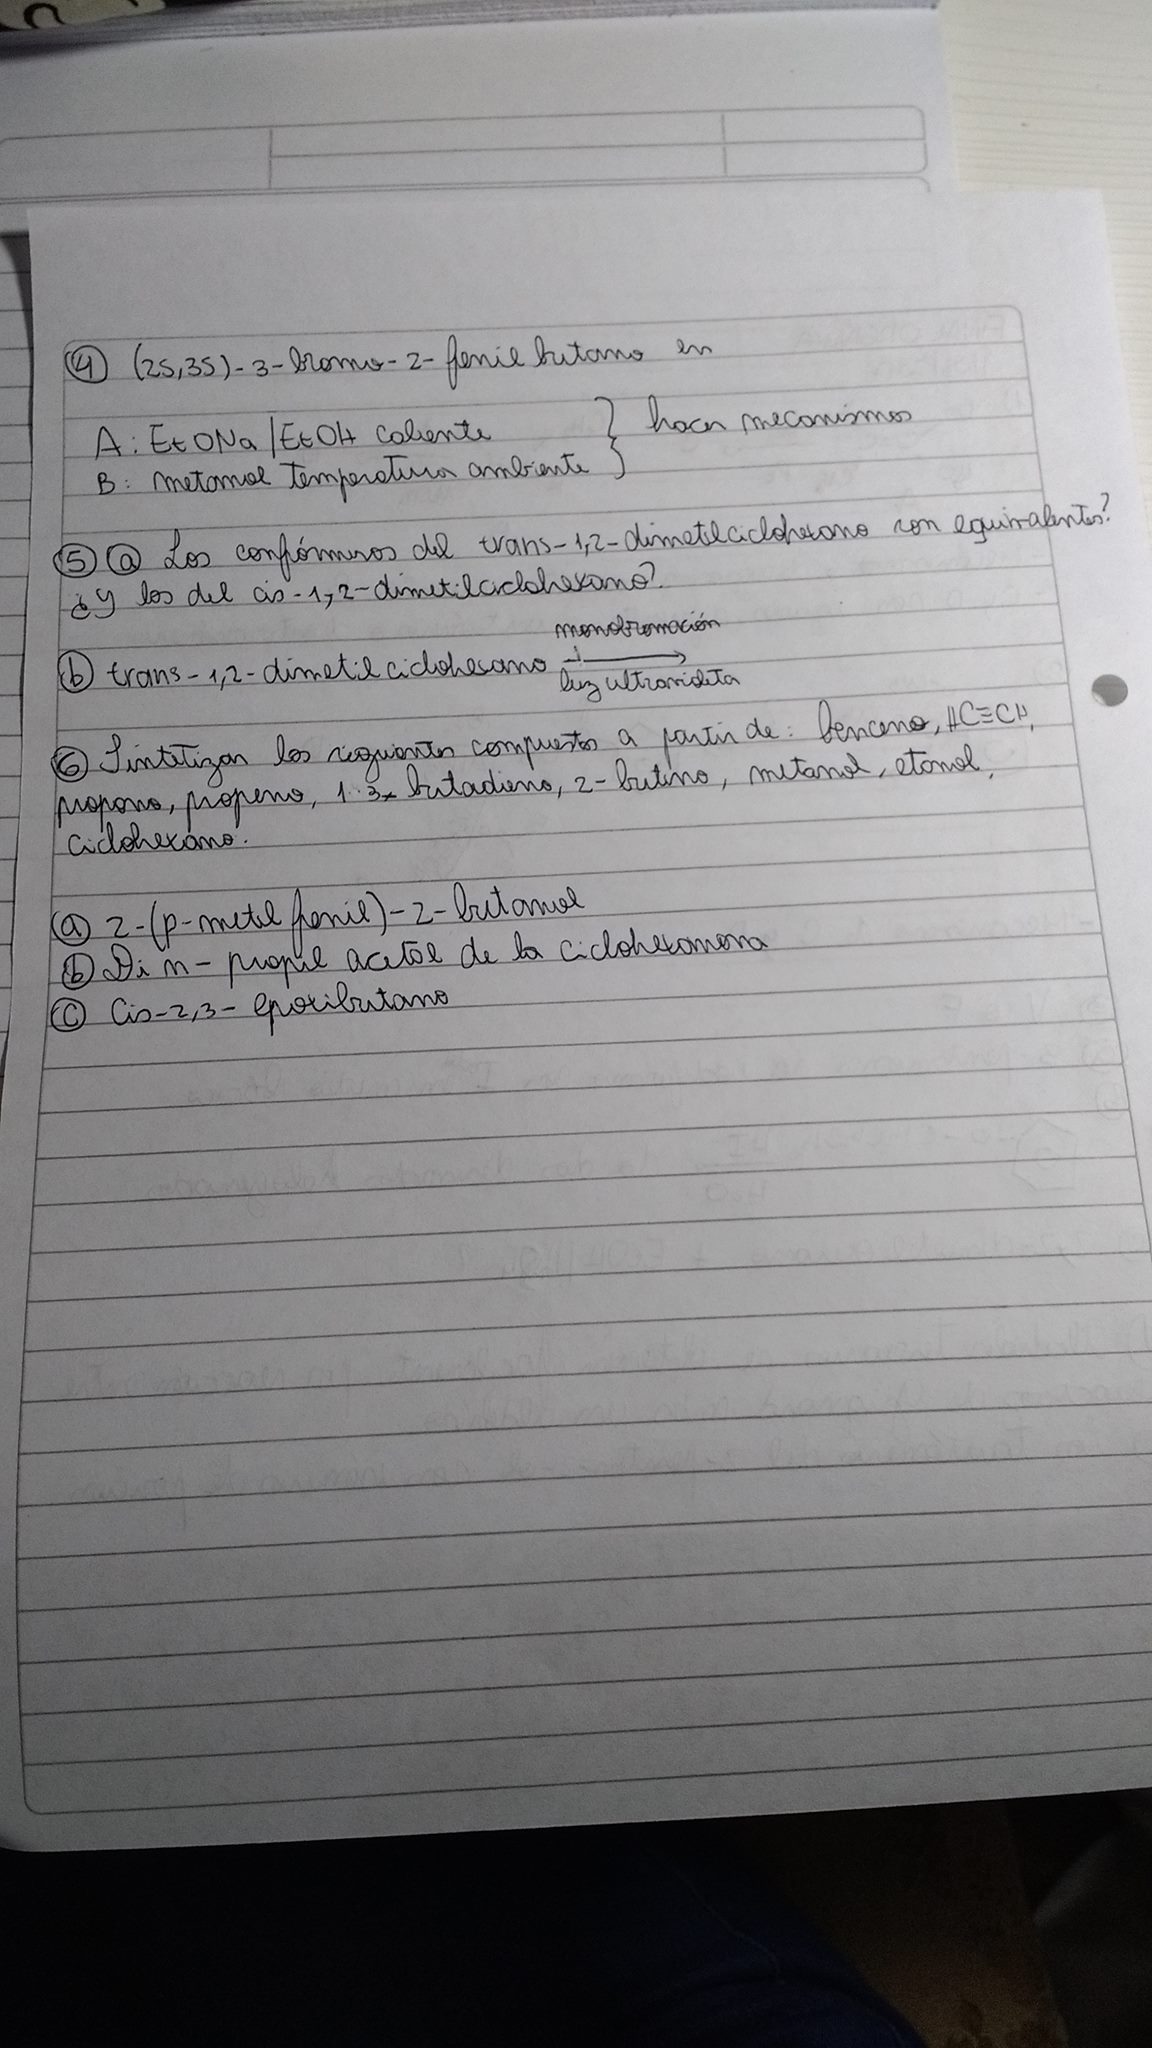 ④ (2S,3S)-3-bromo-2-fenil butano en
A: EtONa/EtOH caliente } hacer mecanismos
B: metanol temperatura ambiente
⑤ ⓐ Los confórmeros del trans-1,2-dimetilciclohexano son equivalentes?
¿Y los del cis-1,2-dimetilciclohexano?
monobromación
ⓑ trans-1,2-dimetil ciclohexano →
luz ultravioleta
⑥ Sintetizar los siguientes compuestos a partir de: benceno, HC≡CH,
propano, propeno, 1,3- butadieno, 2-butino, metanol, etanol,
ciclohexano.
ⓐ 2-(p-metil fenil)-2-butanol
ⓑ Di n-propil acetal de la ciclohexanona
ⓒ Cis-2,3-epoxibutano